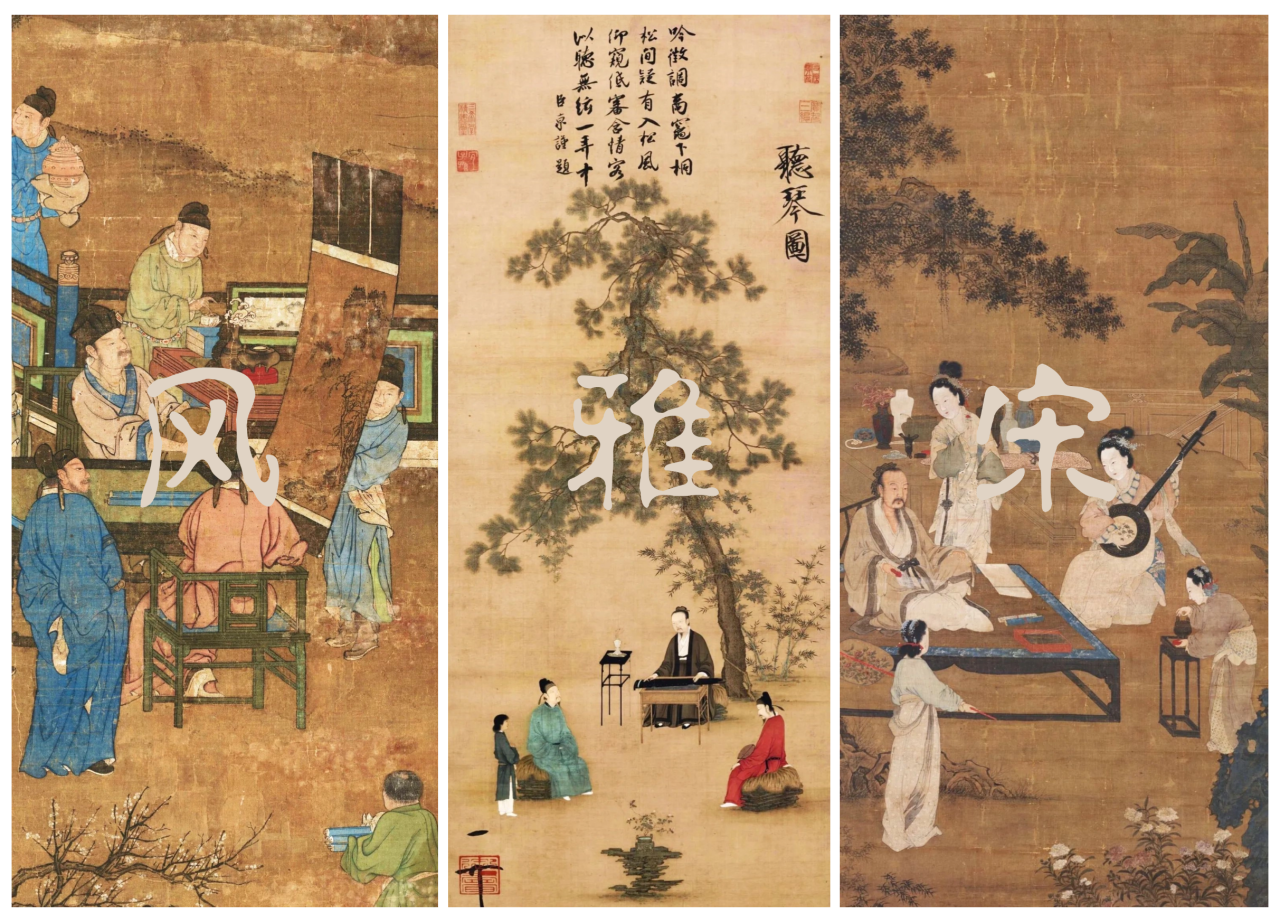 風雅宋
聽琴圖
吟徵調商竈下桐
松間疑有入松風
仰窺低審含情客
以聽無絃一弄中
臣京謹題